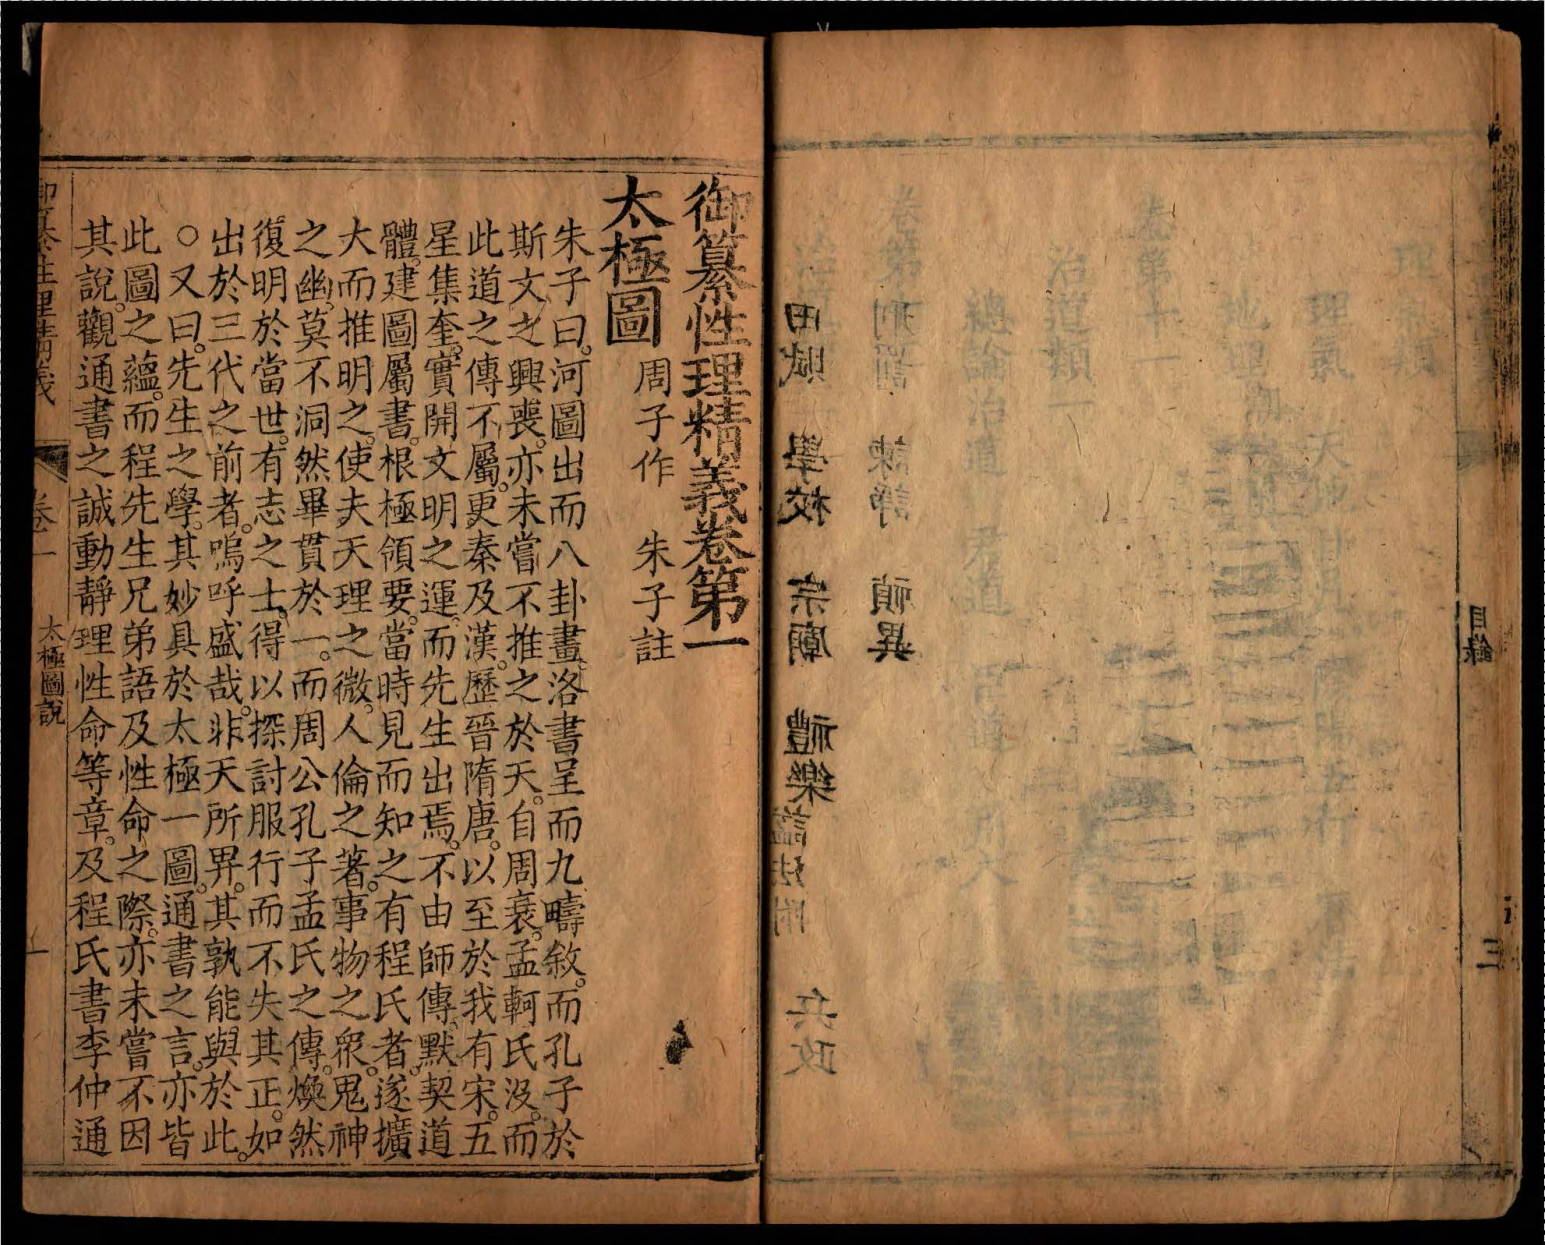 目錄 三
理氣
卷第十一
治道類一
總論治道 君道
刑罰 諫諍 禎異
田賦 學校 宗廟 禮樂諡法附 兵政
御纂性理精義卷第一
太極圖 周子作 朱子註
朱子曰。河圖出而八卦畫。洛書呈而九疇敘。而孔子於
斯文之興喪。亦未嘗不推之於天。自周衰。孟軻氏沒。而
此道之傳不屬。更秦及漢。歷晉隋唐。以至於我有宋。五
星集奎。實開文明之運。而先生出焉。不由師傳。默契道
體。建圖屬書。根極領要。當時見而知之。有程氏者。遂擴
大而推明之。使夫天理之微。人倫之著。事物之眾。鬼神
之幽。莫不洞然畢貫於一。而周公孔子孟氏之傳。煥然
復明於當世。有志之士。得以探討服行而不失其正。如
出於三代之前者。嗚呼盛哉。非天所畀。其孰能與於此。
○又曰。先生之學。其妙具於太極一圖。通書之言。亦皆
此圖之蘊。而程先生兄弟語及性命之際。亦未嘗不因
其說。觀通書之誠動靜理性命等章。及程氏書李仲通
御纂性理精義 卷一 太極圖說 一